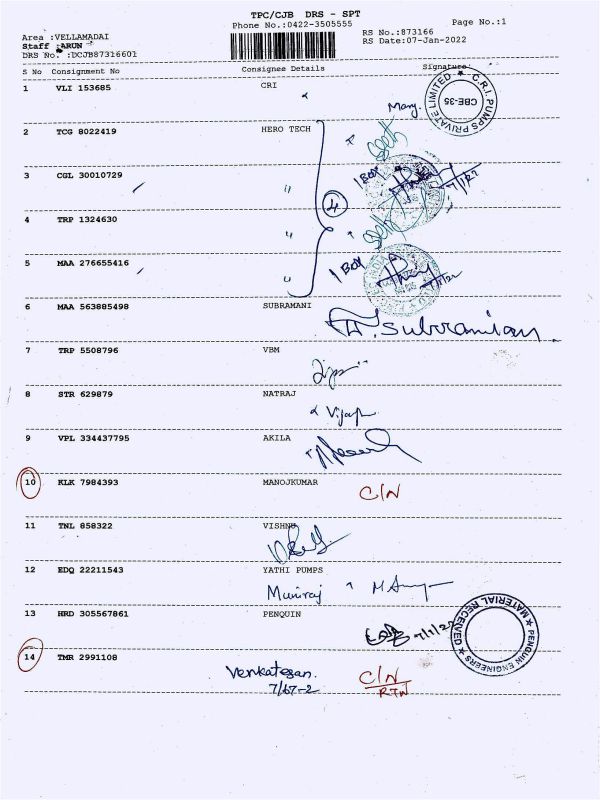 TPC/CJB DRS - SPT
Phone No.:0422-3505555
Page No.:1
Area :VELLAMADAI
Staff :ARUN
DRS No. :DCJB87316601
RS No.:873166
RS Date:07-Jan-2022
S No Consignment No Consignee Details Signature
1 VLI 153685 CRI
Mary
C.R.I. PUMPS PRIVATE LIMITED ★ CBE-35
2 TCG 8022419 HERO TECH
3 CGL 30010729 "
1 Box
7/1/22
4
4 TRP 1324630 "
5 MAA 276655416 "
1 Box
6 MAA 563885498 SUBRAMANI
7 TRP 5508796 VBM
8 STR 629879 NATRAJ
9 VPL 334437795 AKILA
10 KLK 7984393 MANOJKUMAR C/N
11 TNL 858322 VISHNU
12 EDQ 22211543 YATHI PUMPS
Muniraj
13 HRD 305567861 PENQUIN
7/1/22
★ PENGUIN ENGINEERS ★ MATERIAL RECEIVED
14 TMR 2991108
Venkatesan C/N
RTN